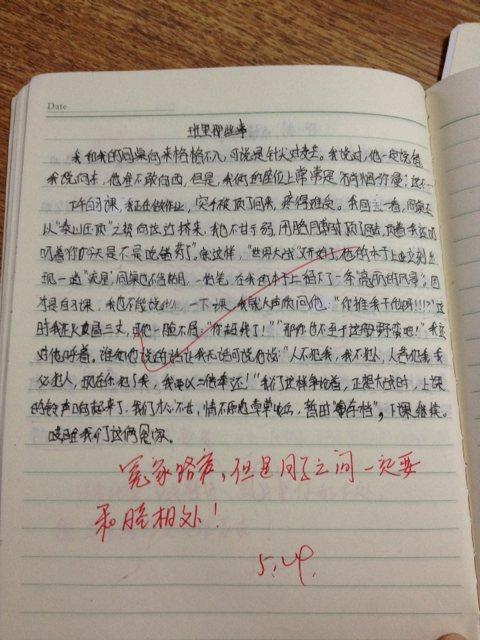 Date
班里那些事
我和我的同桌向来格格不入,可说是针尖对麦芒。我说对,他一定说错,
我说向东,他准不敢向西,但是,我们的座位上常常是"硝烟弥漫",这不一
下午自习课,我正在做作业,突然被顶了回来,疼得难受。我回头一看,同桌正
以"泰山压顶"之势向这边挤来,我也不甘示弱,用胳膊肘顶了回去,顶着我还叨
叨着"你今天是不是吃错药了"。就这样,"世界大战"又开始了,他的本子上出现
现一道"流星",同桌也不含糊,一伸笔,在我的本子上增大了一条"亮丽的风景"。因
为是自习课,我也不能说什么,一下课,我就大声质问他:"你推我干什么啊!!!?"这
时我怒火直冒三丈,可他一脸不屑:"你超线了!""那你也不至于这样野蛮吧!"我在
对他吼着。谁知他说的话让我无话可说,他说:"人不犯我,我不犯人,人若犯我,我
必犯人,现在你犯了我,我要以二倍奉还!"我们这样争论着,正想大战时,上课
的铃声响起来了,我们才心不甘,情不愿地乖乖坐下,暂时"存档",下课继续。
哎哟我们这俩冤家。
冤家路窄,但是同学之间一定要
和睦相处!
5.24.